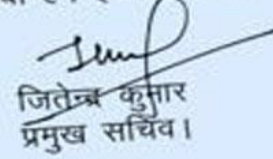 जितेन्द्र कुमार
प्रमुख सचिव।